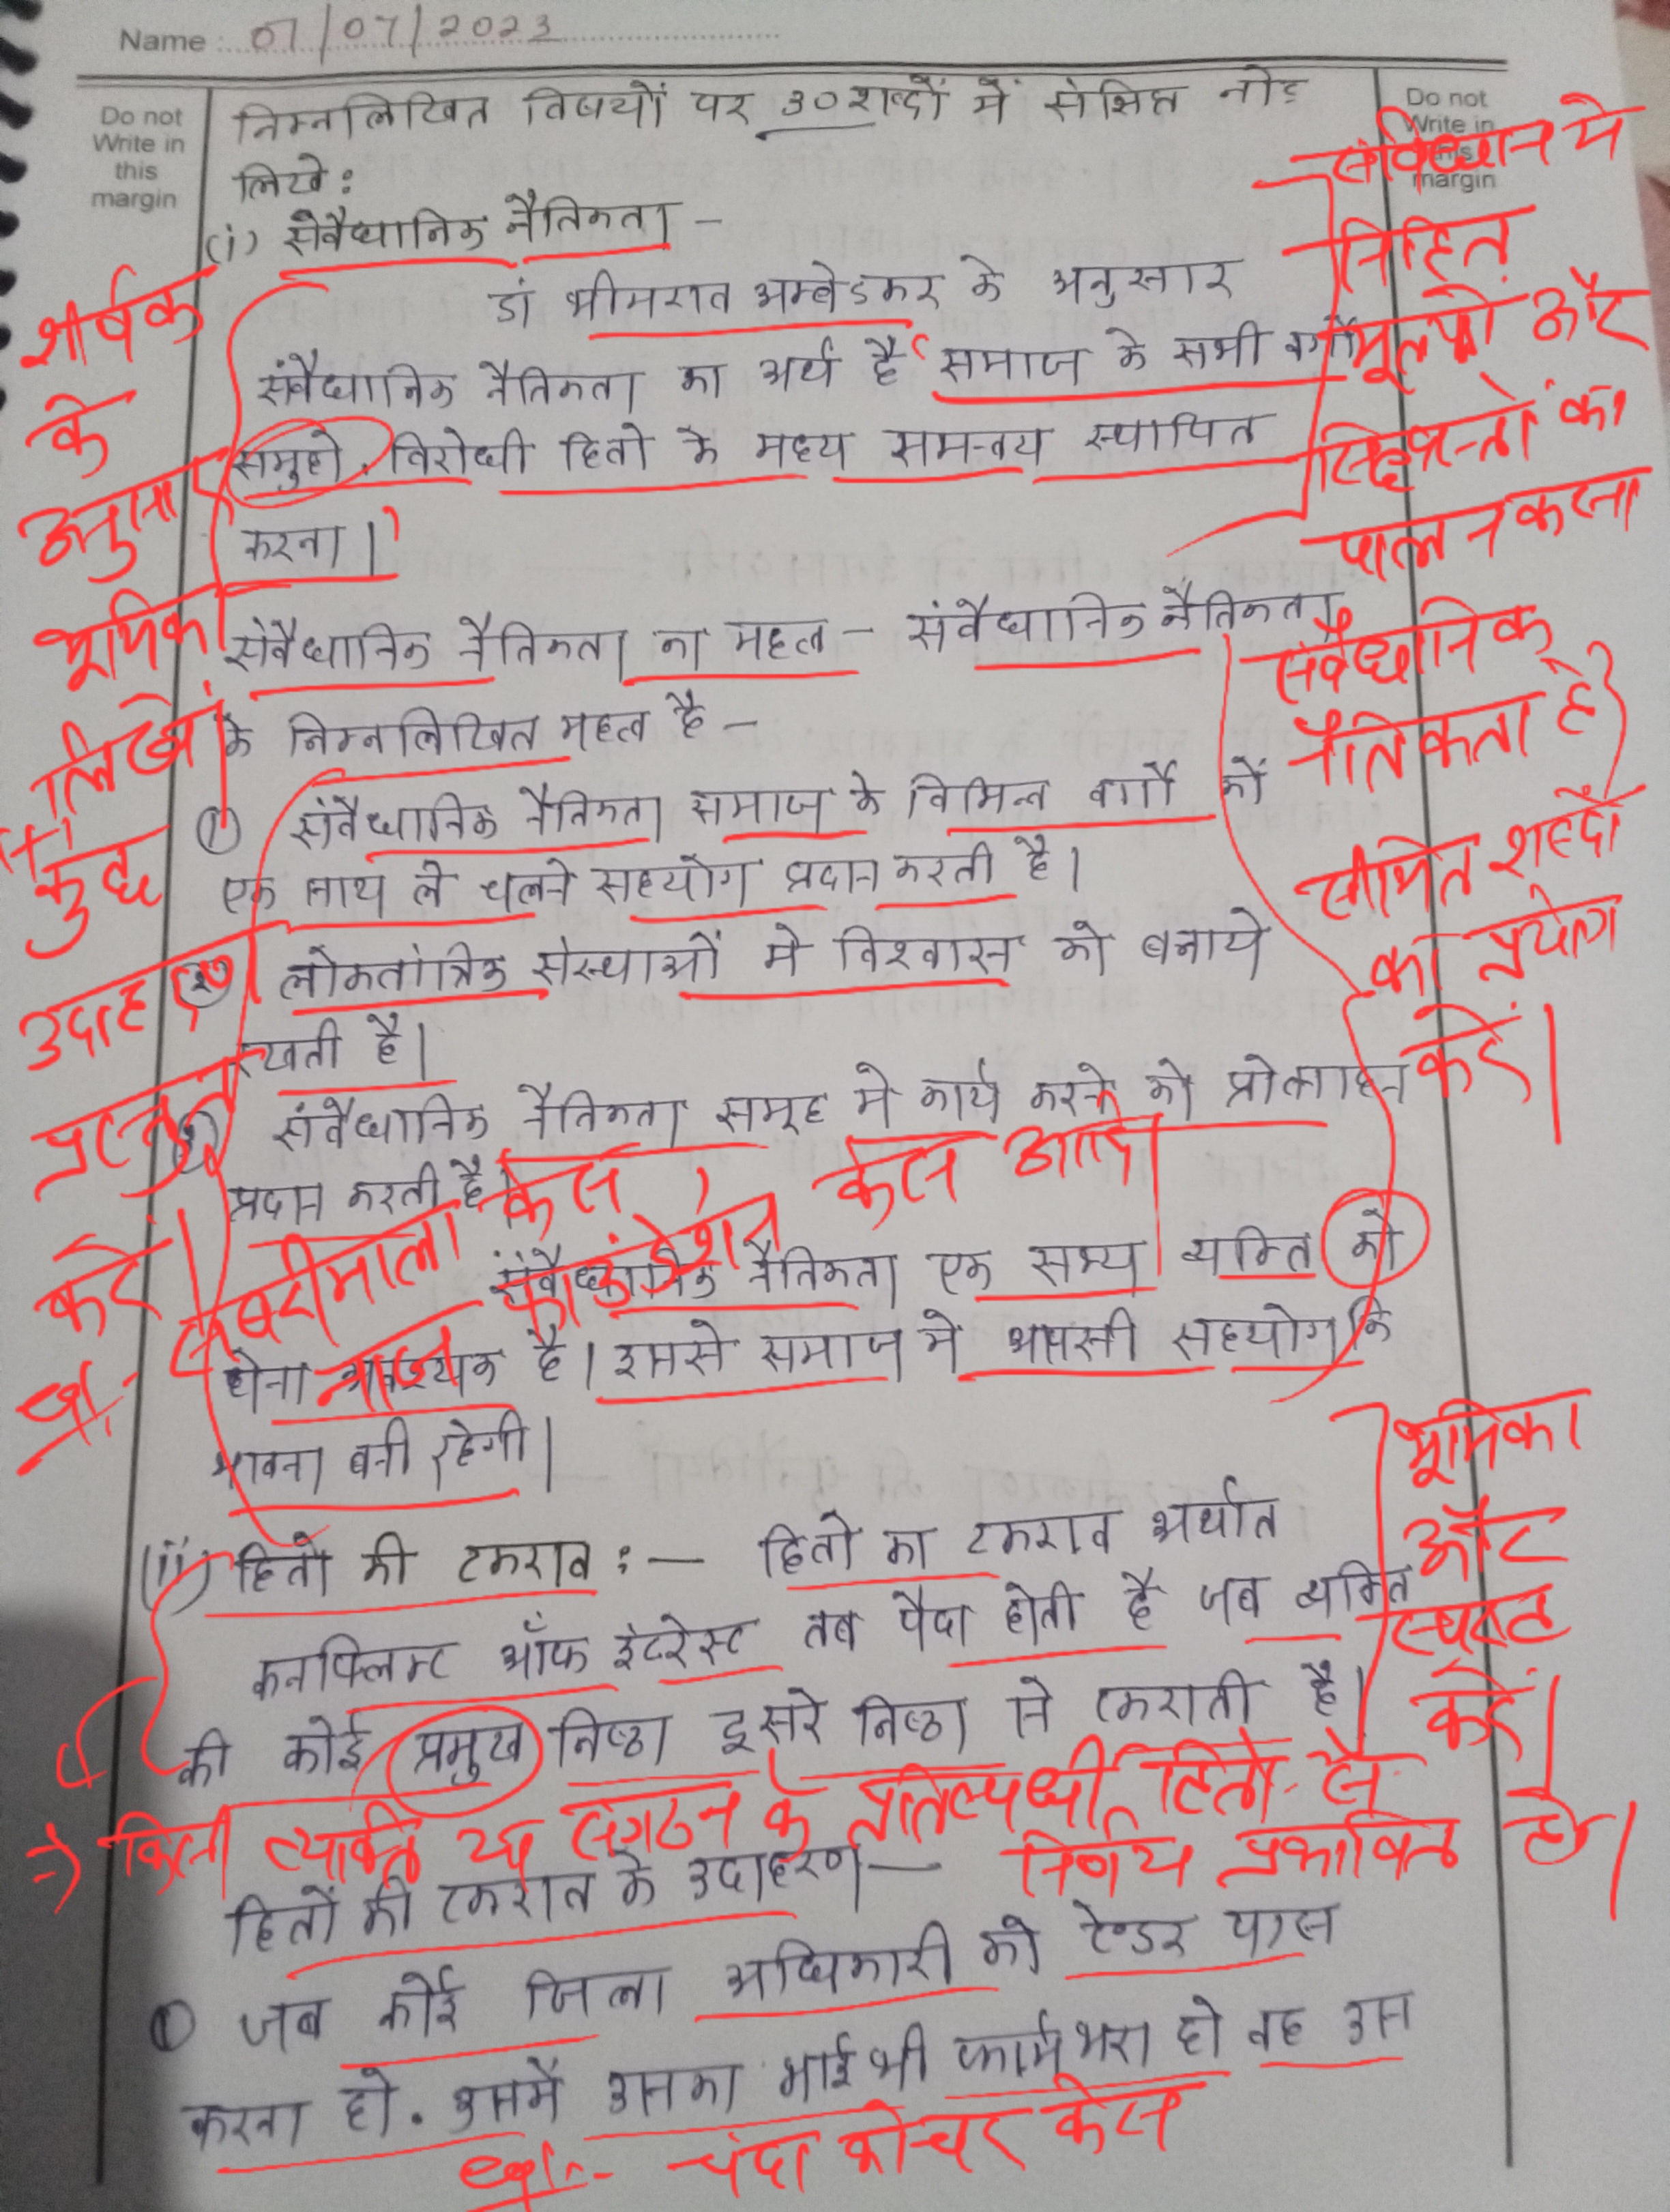 Name : 07/07/2023
Do not
Write in
this
margin
Do not
Write in
this
margin
निम्नलिखित विषयों पर 30 शब्दों में संक्षिप्त नोट
लिखे :
(i) संवैधानिक नैतिकता –
डां भीमराव अम्बेडकर के अनुसार
संवैधानिक नैतिकता का अर्थ है "समाज के सभी वर्गों
समुहो, विरोधी हितो के मध्य समन्वय स्थापित
करना।"
संवैधानिक नैतिकता का महत्व – संवैधानिक नैतिकता
के निम्नलिखित महत्व है –
① संवैधानिक नैतिकता समाज के विभिन्न वर्गों को
एक साथ ले चलने सहयोग प्रदान करती है।
② लोकतांत्रिक संस्थाओं मे विश्वास को बनाये
रखती है।
③ संवैधानिक नैतिकता समूह मे कार्य करने को प्रोत्साहन
प्रदान करती है।
संवैधानिक नैतिकता एक सभ्य व्यक्ति को
होना आवश्यक है। इससे समाज मे आपसी सहयोग कि
भावना बनी रहेगी।
(ii) हितो की टकराव : – हितो का टकराव अर्थात
कनफ्लिक्ट ऑफ इंटरेस्ट तब पैदा होती है जब व्यक्ति
की कोई प्रमुख निष्ठा दूसरे निष्ठा से टकराती है।
हितों की टकराव के उदाहरण –
① जब कोई जिला अधिकारी को टेण्डर पास
करना हो. उसमें उसका भाई भी फार्म भरा हो वह उस
शीर्षक
के
अनुसार
भूमिका
लिखें
कुछ
उदाहरण
प्रस्तुत
करें।
सबरीमाला केस,
नाज फाउंडेशन केस आदि।
संविधान मे
निहित
मूल्यों और
सिद्धान्तों का
पालन करना
संवैधानिक
नैतिकता है
सीमित शब्दों
का प्रयोग
करें।
भूमिका
और
स्पष्ट
करें।
⇒ किसी व्यक्ति या संगठन के प्रतिस्पर्धी हितो से
निर्णय प्रभावित हो।
चंदा कोचर केस